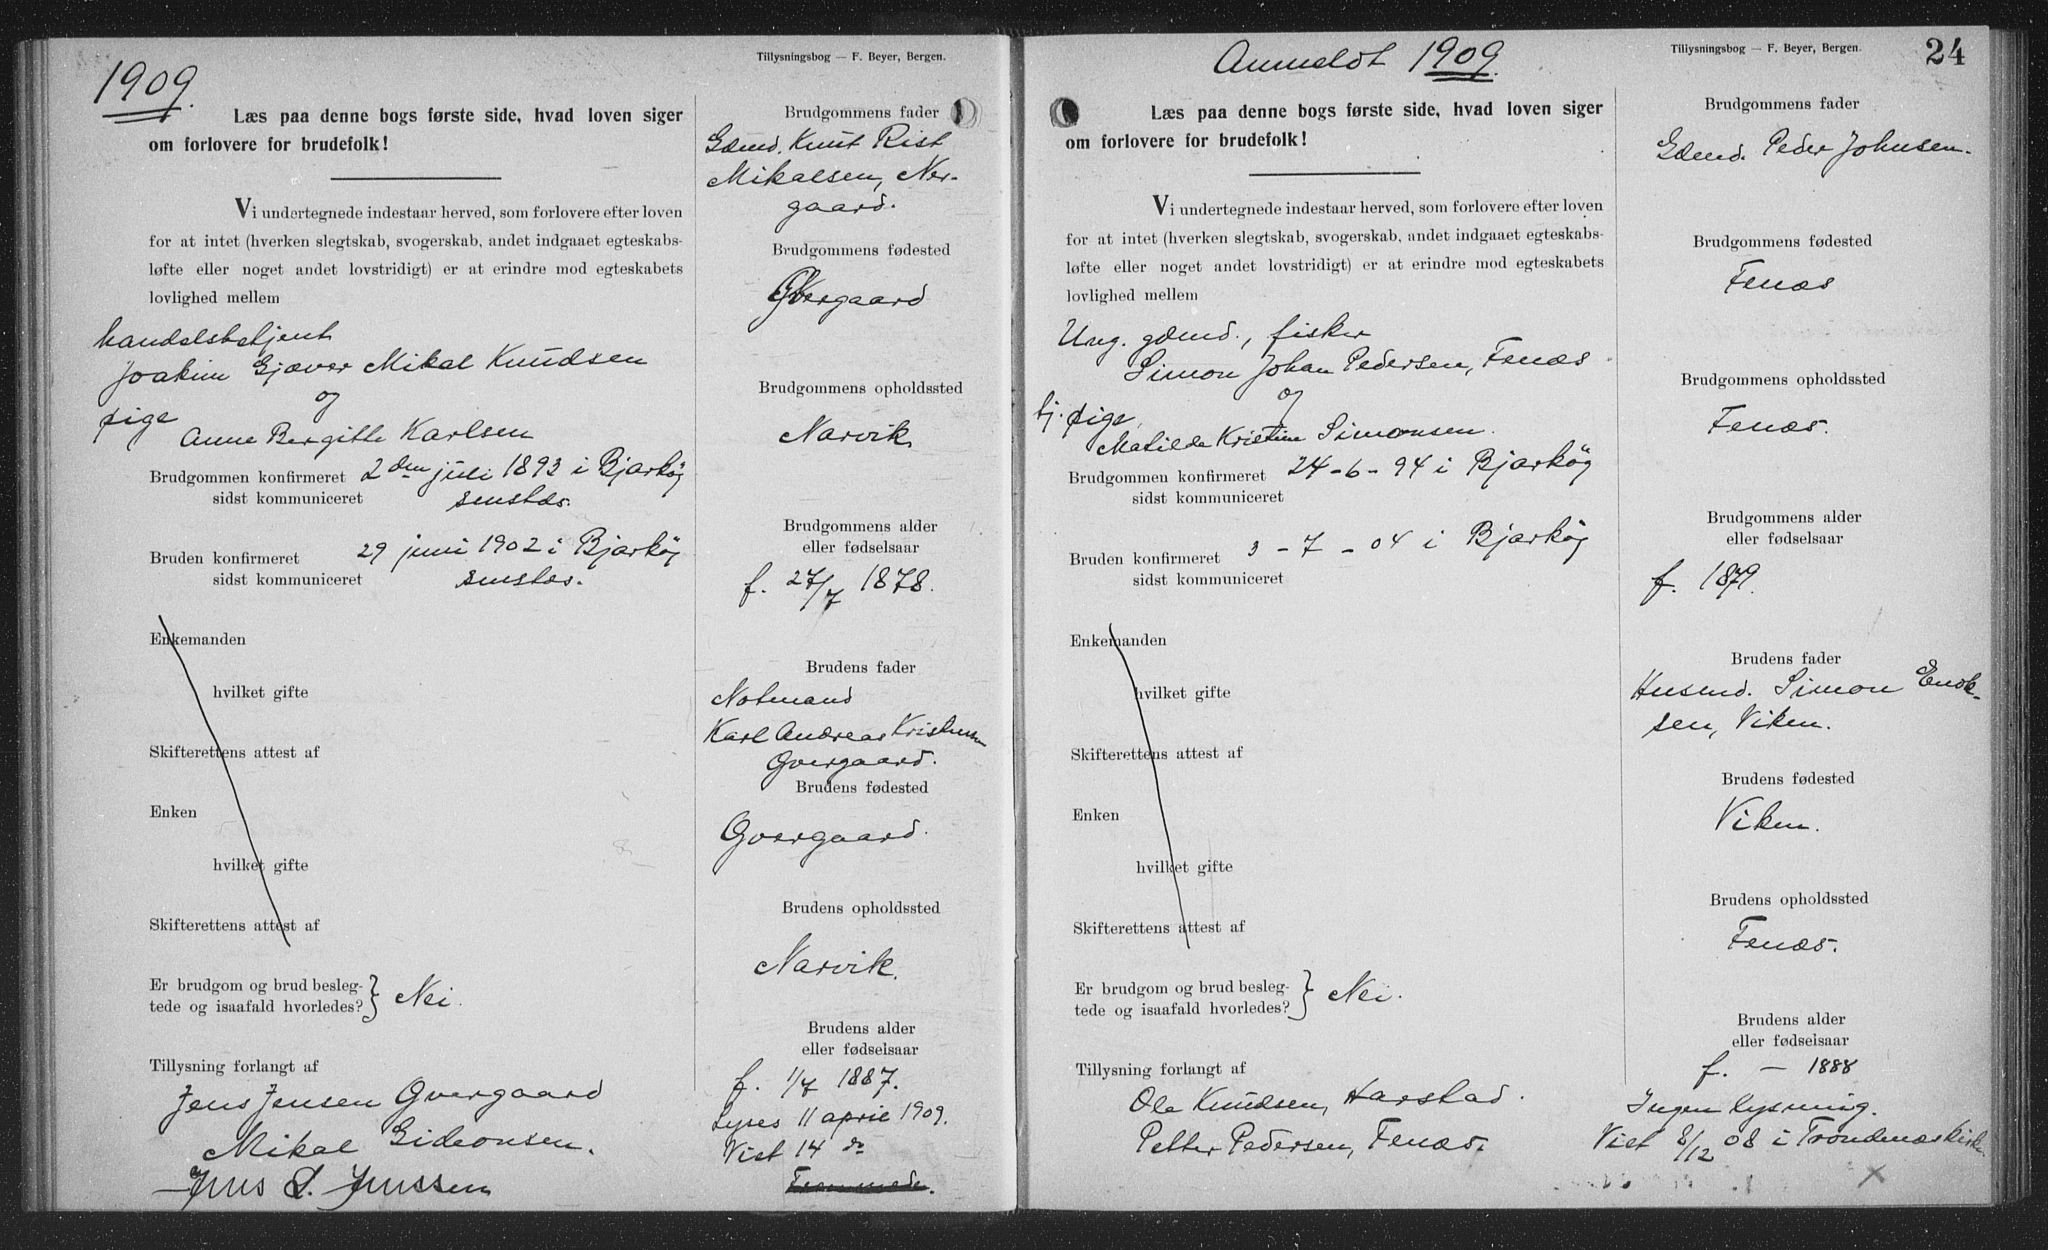 1909.
Tillysningsbog — F. Beyer, Bergen.
Læs paa denne bogs første side, hvad loven siger
om forlovere for brudefolk!
Vi undertegnede indestaar herved, som forlovere efter loven
for at intet (hverken slegtskab, svogerskab, andet indgaaet egteskabs-
løfte eller noget andet lovstridigt) er at erindre mod egteskabets
lovlighed mellem
handelsbetjent
Joakim Gjæver Mikal Knudsen
og
pige
Anne Bergitte Karlsen
Brudgommen konfirmeret 2den juli 1893 i Bjarkøy
sidst kommuniceret senstas.
Bruden konfirmeret 29 juni 1902 i Bjarkøy
sidst kommuniceret senstas.
Enkemanden
hvilket gifte
Skifterettens attest af
Enken
hvilket gifte
Skifterettens attest af
Er brudgom og brud besleg-
tede og isaafald hvorledes? } Nei.
Tillysning forlangt af
Jens Jensen Gvergaard
Mikal Gideonsen.
Jens S. Jenssen
Brudgommens fader
Gdmd. Knut Rist
Mikalsen, Ner-
gaard.
Brudgommens fødested
Øvergaard
Brudgommens opholdssted
Narvik
Brudgommens alder
eller fødselsaar
f. 27/7 1878.
Brudens fader
Notmand
Karl Andreas Kristensen
Øvergaard.
Brudens fødested
Øvergaard.
Brudens opholdssted
Narvik.
Brudens alder
eller fødselsaar
f. 1/7 1887.
Lyses 11 april 1909.
Viet 14 do
Anmeldt 1909.
Tillysningsbog — F. Beyer, Bergen.
24
Læs paa denne bogs første side, hvad loven siger
om forlovere for brudefolk!
Vi undertegnede indestaar herved, som forlovere efter loven
for at intet (hverken slegtskab, svogerskab, andet indgaaet egteskabs-
løfte eller noget andet lovstridigt) er at erindre mod egteskabets
lovlighed mellem
Ung. gdmd., fisker
Simon Johan Pedersen, Fenæs
og
tj. pige,
Matilde Kristine Simonsen.
Brudgommen konfirmeret 24-6-94 i Bjarkøy
sidst kommuniceret
Bruden konfirmeret 3-7-04 i Bjarkøy
sidst kommuniceret
Enkemanden
hvilket gifte
Skifterettens attest af
Enken
hvilket gifte
Skifterettens attest af
Er brudgom og brud besleg-
tede og isaafald hvorledes? } Nei.
Tillysning forlangt af
Ole Knudsen, Harstad.
Petter Pedersen, Fenæs.
Brudgommens fader
Gdmd. Peder Johnsen.
Brudgommens fødested
Fenæs
Brudgommens opholdssted
Fenæs.
Brudgommens alder
eller fødselsaar
f. 1879.
Brudens fader
Husmd. Simon Enok-
sen, Viken.
Brudens fødested
Viken.
Brudens opholdssted
Fenæs.
Brudens alder
eller fødselsaar
f. — 1888
Ingen lysning.
Viet 8/12 08 i Trondenæs kirke